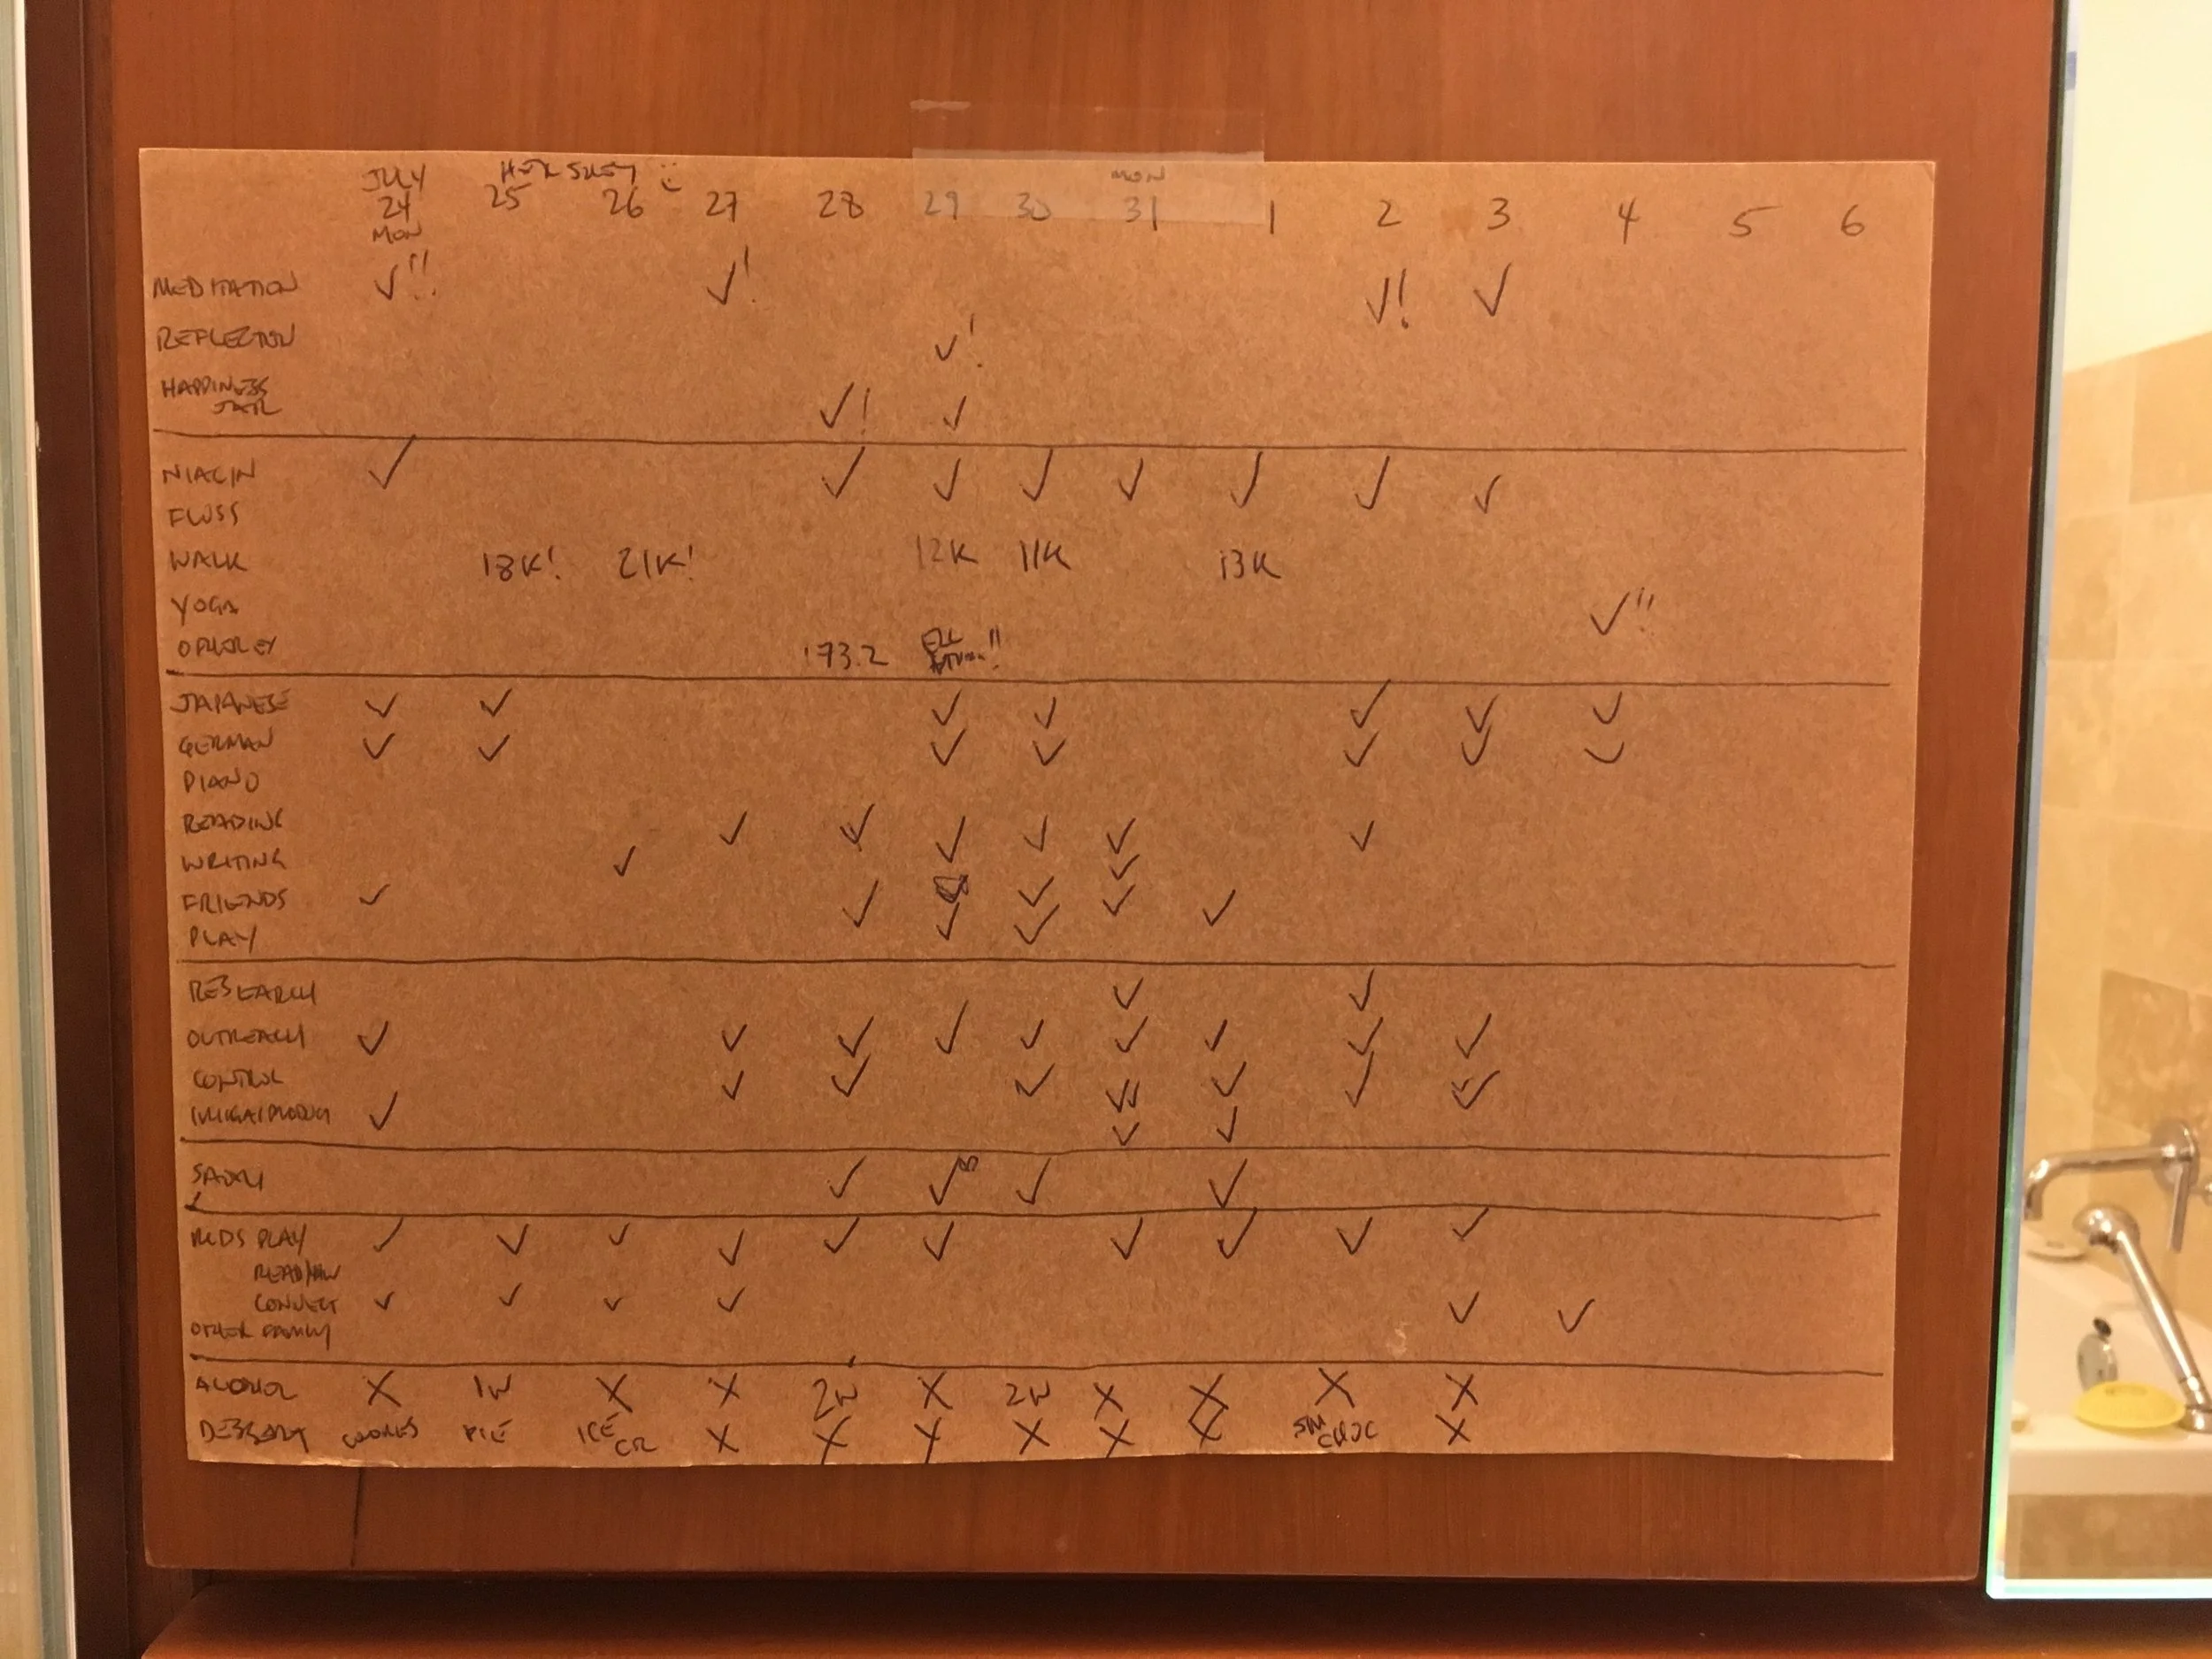 JULY HERSHEY MON
24 25 26 27 28 29 30 31 1 2 3 4 5 6
MON
MEDITATION ✓!! ✓! ✓! ✓
REFLECTION ✓!
HAPPINESS
JAR ✓! ✓
NIACIN ✓ ✓ ✓ ✓ ✓ ✓ ✓ ✓
FLOSS
WALK 18K! 21K! 12K 11K 13K
YOGA ✓!!
173.2 !!
JAPANESE ✓ ✓ ✓ ✓ ✓ ✓ ✓
GERMAN ✓ ✓ ✓ ✓ ✓ ✓ ✓
PIANO
READING ✓ ✓ ✓ ✓ ✓ ✓
WRITING ✓ ✓
FRIENDS ✓ ✓ ✓ ✓ ✓
PLAY ✓ ✓
RESEARCH ✓ ✓
OUTREACH ✓ ✓ ✓ ✓ ✓ ✓ ✓ ✓ ✓
CONTROL ✓ ✓ ✓ ✓✓ ✓ ✓ ✓
✓ ✓ ✓
✓ ✓ ✓ ✓
KIDS PLAY ✓ ✓ ✓ ✓ ✓ ✓ ✓ ✓ ✓ ✓
READ/HW
CONNECT ✓ ✓ ✓ ✓ ✓ ✓
OTHER FAMILY
ALCOHOL X 1W X X 2W X 2W X X X X
DESSERT COOKIES PIE ICE CR X X X X X X SM CHOC X